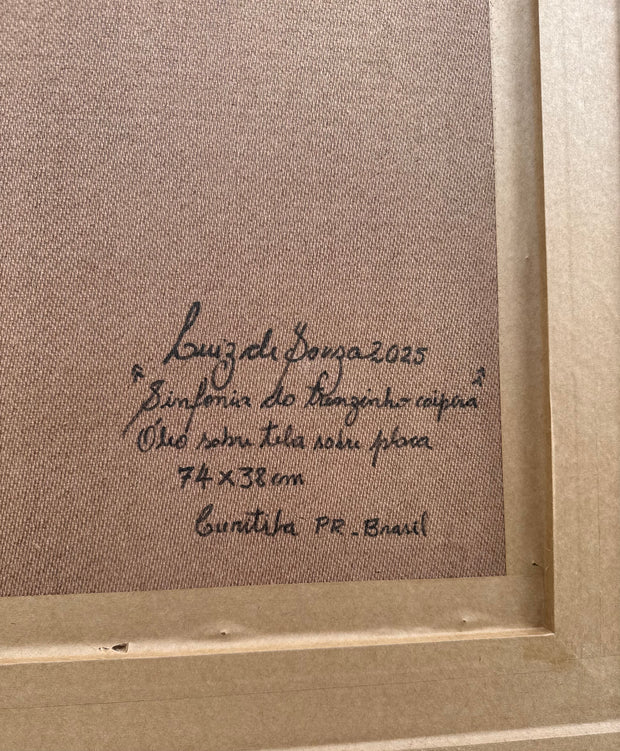 Luiz de Souza 2025
"Sinfonia do trenzinho caipira"
Óleo sobre tela sobre placa
74 x 38 cm
Curitiba PR - Brasil